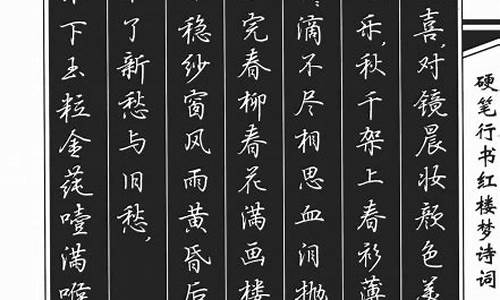 硬笔行书红楼梦诗词
喜,对镜晨妆颜色美
乐,秋千架上春衫薄
滴不尽相思血泪抛
完春柳春花满画楼
稳纱窗风雨黄昏后
了新愁与旧愁,
下玉粒金莼噎满喉